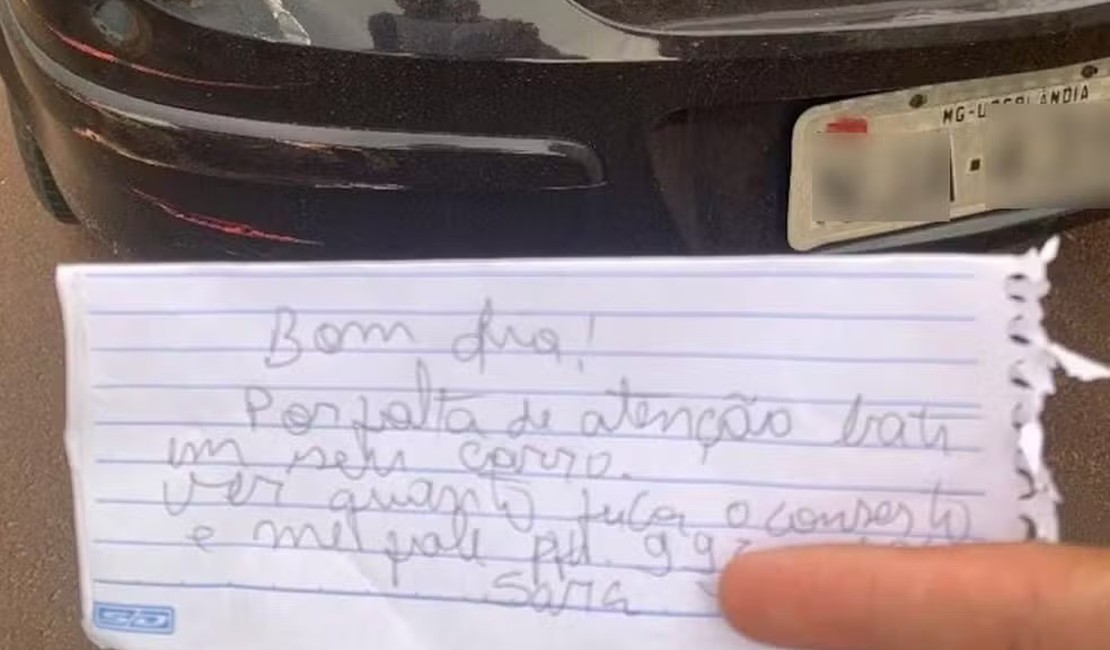 MG-UBERLANDIA
Bom dia!
Por falta de atenção bati
em seu carro.
ver quanto fica o conserto
e me fale 99
Sara